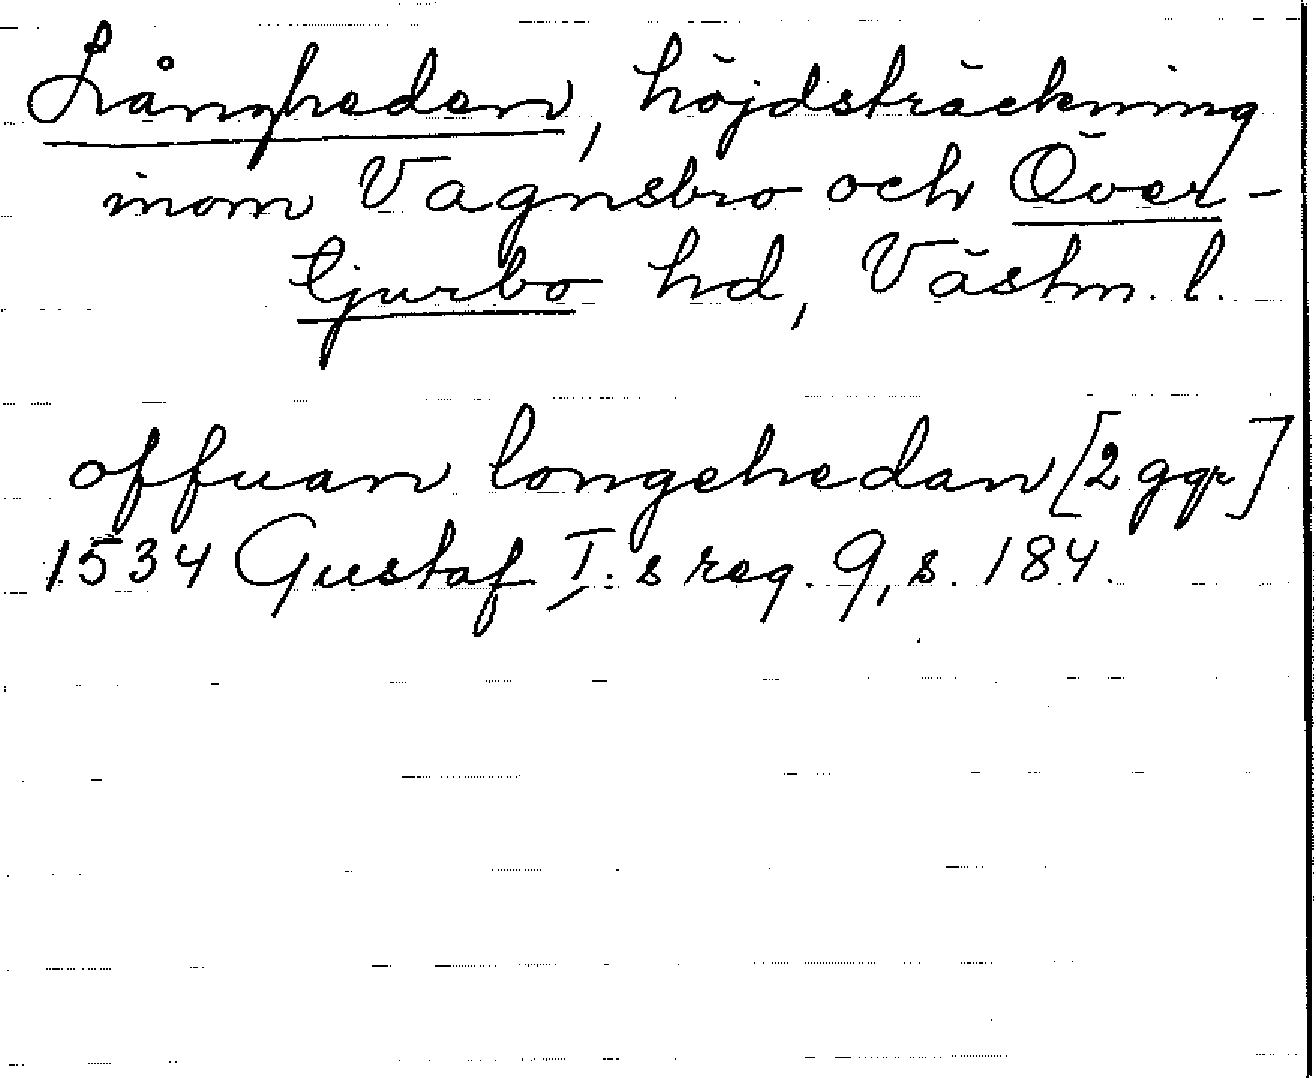 Långheden, höjdsträckning
inom Vagnsbro och Över-
tjurbo hd, Västm. l.
offuan longehedan [2 ggr]
1534 Gustaf I:s reg. 9, s. 184.